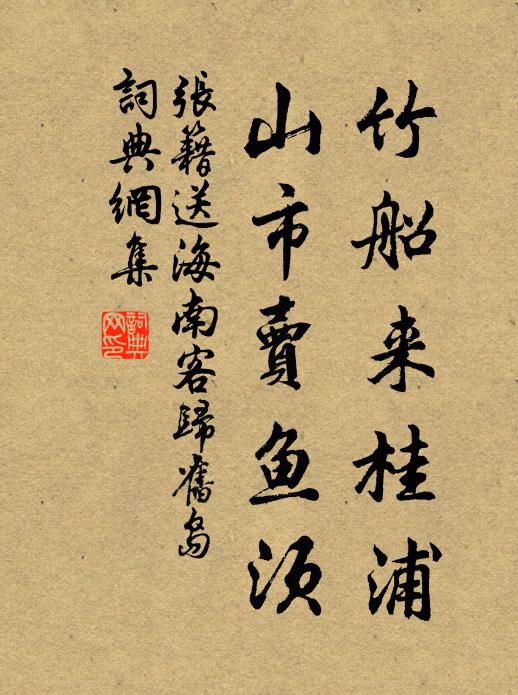 竹船来桂浦
山市賣鱼须
張籍送海南客歸舊島
詞典網集
詞典網印